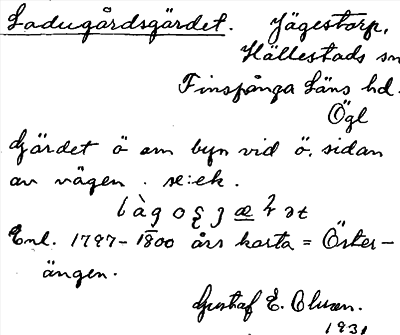 Ladugårdsgärdet. Jägestorp,
Hällestads sn
Finspånga Läns hd.
Ögl
Gärdet ö om byn vid ö. sidan
av vägen. se: ek.
Enl. 1797-1800 års karta = Öster-
ängen.
Gustaf E. Olsson.
1931